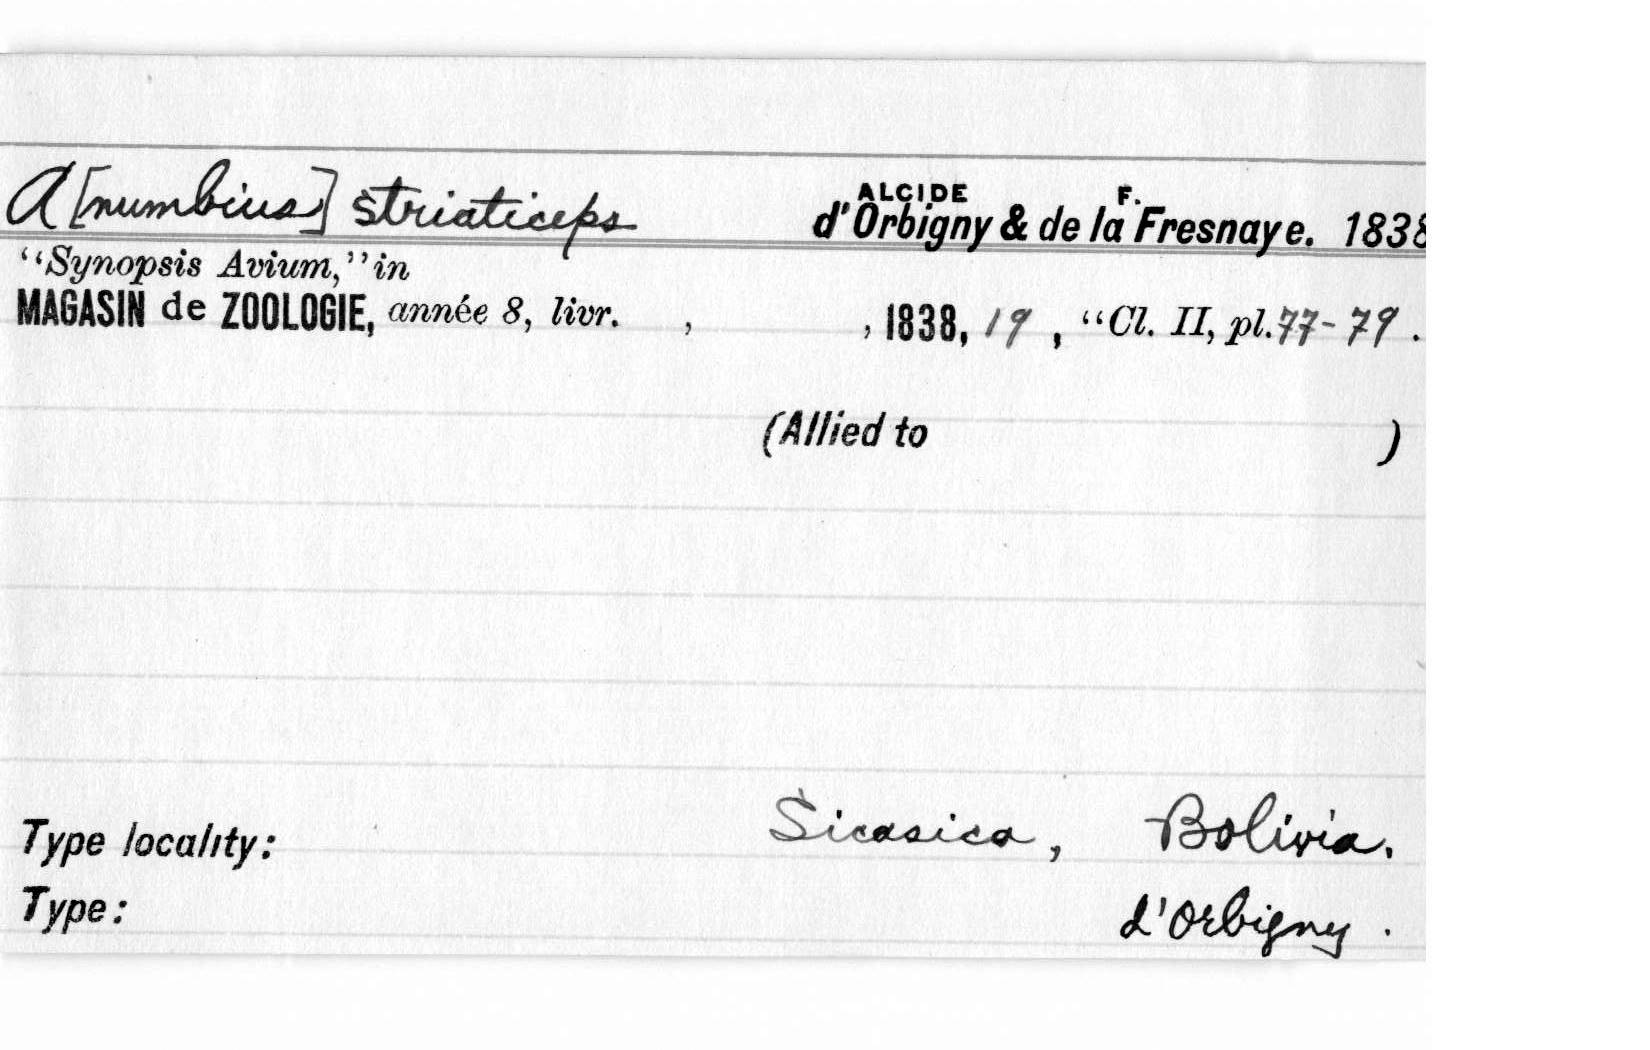 A[numbius] striaticeps
ALCIDE F.
d'Orbigny & de la Fresnaye. 1838
“Synopsis Avium,” in
MAGASIN de ZOOLOGIE, année 8, livr. , , 1838, 19 , “Cl. II, pl. 77-79 .
(Allied to )
Type locality: Sicasica, Bolivia.
Type: d'Orbigny .